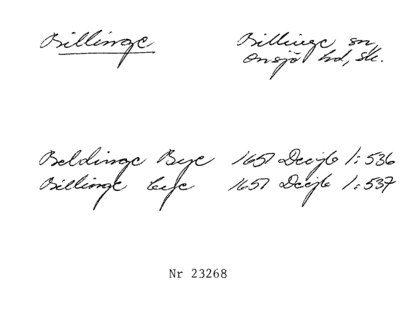 Billinge
Billinge sn,
Onsjö hd, Sk.
Beldinge Bye 1657 Decjb 1:536
Billinge bye 1657 Decjb 1:537
Nr 23268